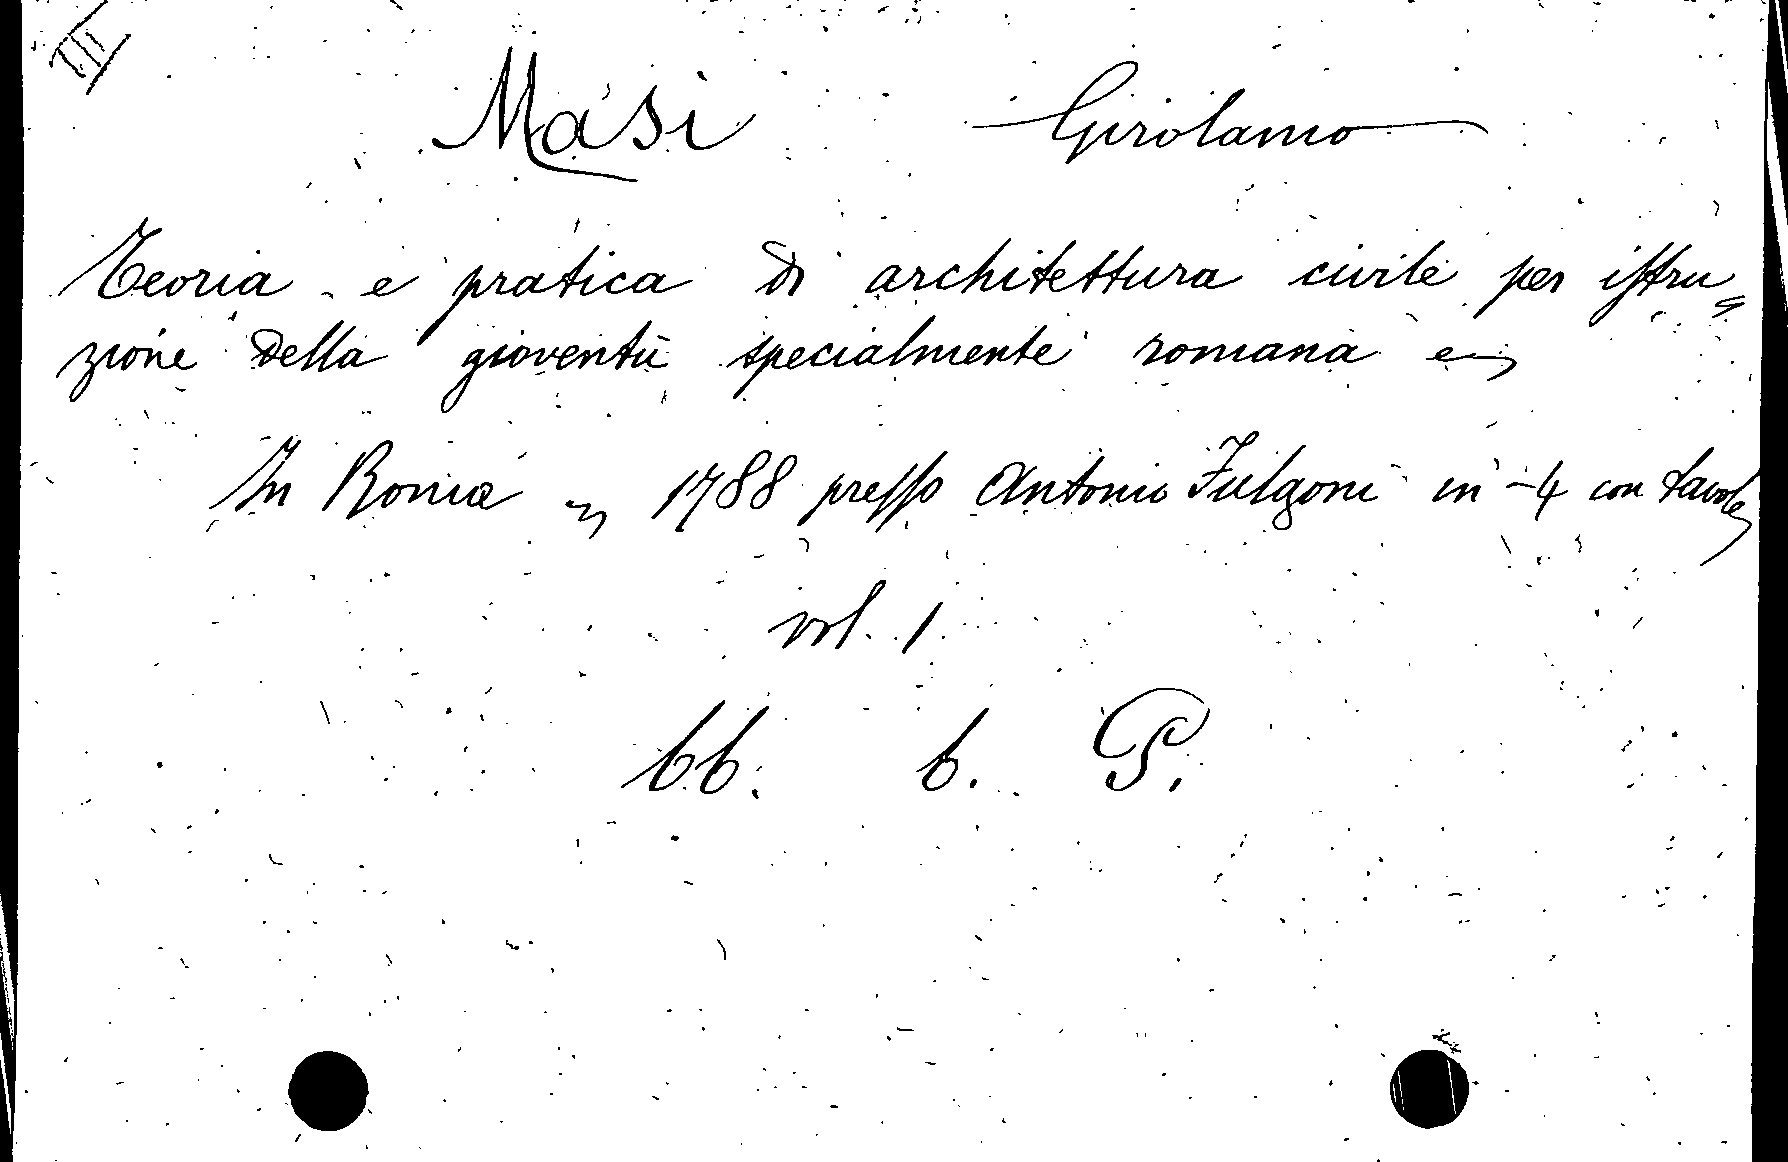 III
Masi Girolamo
Teoria e pratica di architettura civile per istru=
zione della gioventù specialmente romana e
In Roma 1788 presso Antonio Fulgoni in-4 con tavole
vol. 1
bb. b. P.